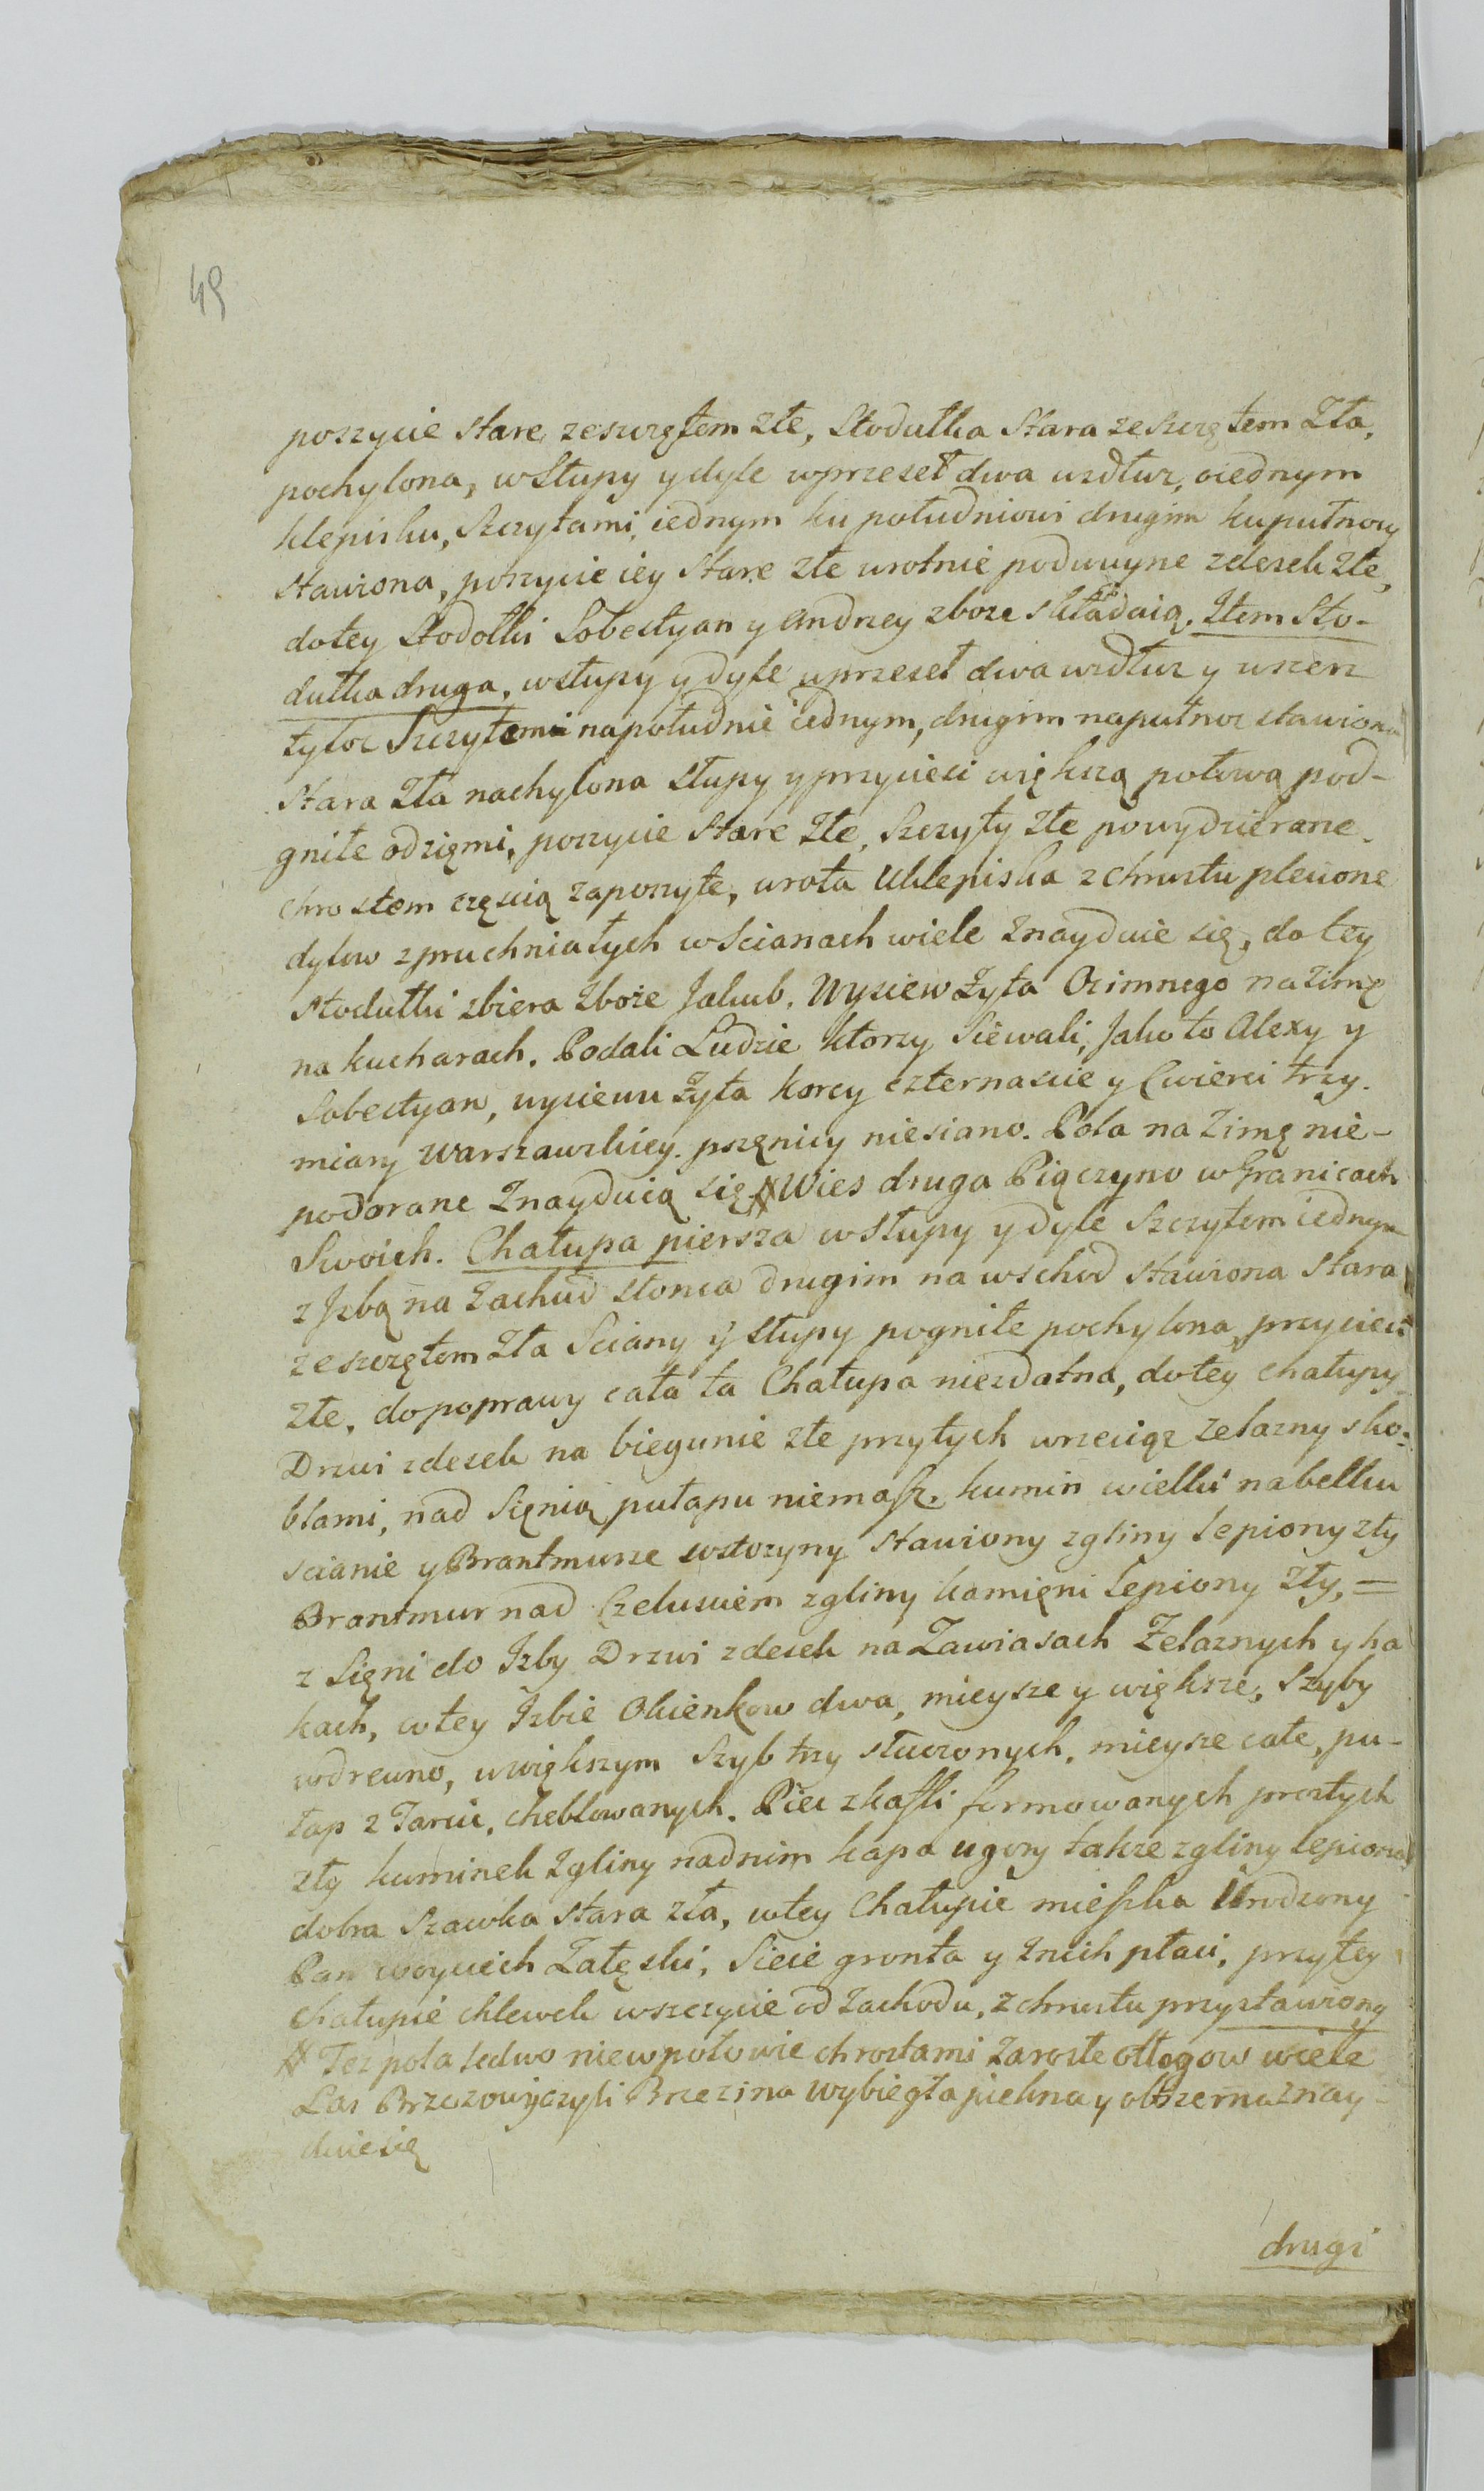 49
poszycie stare zeszczętem złe, Stodułka Stara ze szczętem Zła,
pochylona, w Słupy y dyle wprzeseł dwa wzdłuz, oiednym
klepisku, Szczytami, iednym ku południowi drugim kupułnocy
stawiona, poszycie iey Stare złe wrotnie podwuyne zdesek złe,
dotey Stodołki Sobestyan y Andrzey zboze składaią. Item Sto-
dułka druga, wsłupy y dyle wprzeseł dwa wzdłuz y wszerz
tyloz Szczytami napołudnie iednym, drugim napułnoc stawiona
Stara Zła nachylona Słupy y przyciesi większą połową pod-
gniłe odziemi, poszycie Stare Złe, Szczyty złe powydzierane
chrostem częscią zaposzyte, wrota Uklepiska z chrustu plecione
dylow zpruchniałych w Scianach wiele Znayduie się, do tey
stodułki zbiera Zboże Jakub. Wysiew Żyta Ozimnego na zimę
na kucharach. Podali Ludzie ktorzy Siewali, Jako to Alexy y
Sobestyan, wysiewu żyta korcy czternascie y Cwierci trzy.
miary Warszawskiey. pszęnicy niesiano. Pola na Zimę nie-
podorane Znayduią się # Wies druga Pięczyno w Granicach
Swoich. Chałupa piersza w Słupy y dyle Szczytem iednym
z Izbą na Zachud słonca drugim na wschod stawiona Stara
ze szczętem Zła Sciany y Słupy pogniłe pochylona przyciesi
złe, dopoprawy cała ta Chałupa niezdatna, dotey chałupy
Drzwi zdesek na biegunie złe przytych wrzeciąz zelazny sko-
blami, nad Sięnią pułapu niemasz. kumin wielki nabelku
scianie y Brantmurze wstozyny Stawiony zgliny lepiony zły
Brantmur nad Czelusciem zgliny kamięni lepiony zły, =
z Sięni do Izby Drzwi zdesek na Zawiasach Żelaznych y ha
kach, wtey Izbie Okienkow dwa, mieysze y większe, Szyby
wdrewno, uwiększym Szyb trzy stuczonych, mieysze całe, pu-
łap z Tarcic, cheblowanych. Piec zkafli formowanych prostych
zły kuminek zgliny nadnim kapa ugory takze zgliny lepiona
dobra Szawka stara zła, wtey Chałupie mieszka Urodzony
Pan Woyciech Załęski, Sieie gronta y Znich płaci, przytey
Chałupie chlewek wszczycie od Zachodu, z chrustu przystawiony
# Tez pola ledwo niewpołowie chrostami Zarosłe otłogow wiele
Las Brzozowy czyli Brzezina Wybiegła piekna y obszerna znay-
duie się
drugi